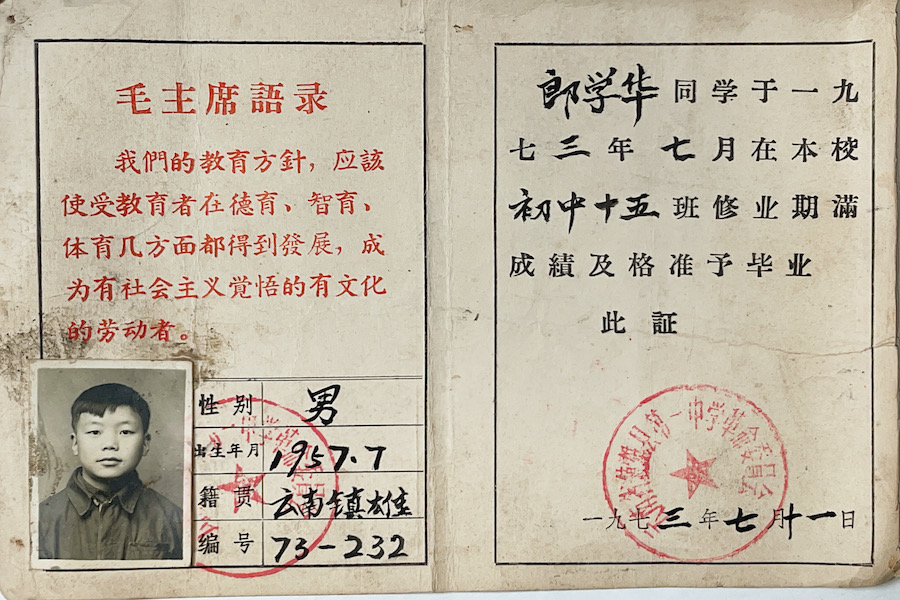 毛主席語录
我們的教育方針，应該
使受教育者在德育、智育、
体育几方面都得到發展，成
为有社会主义覚悟的有文化
的劳动者。
性别 男
出生年月 1957.7
籍贯 云南镇雄
编号 73-232
郎学华同学于一九
七三年七月在本校
初中十五班修业期滿
成績及格准予毕业
此証
第一中学革命委員会
一九七三年七月十一日